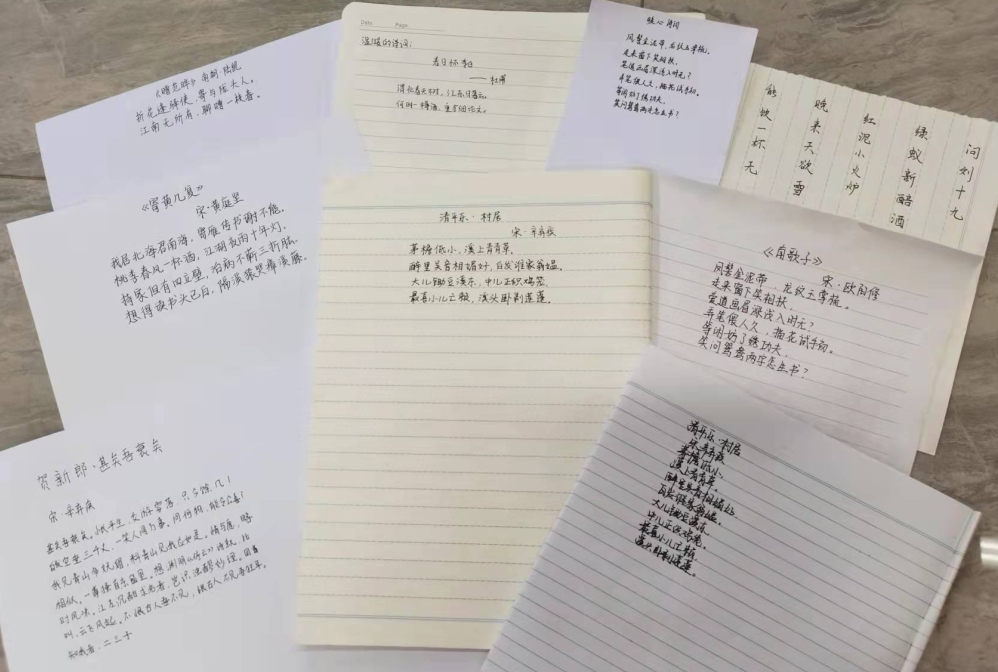 《赠范晔》南朝·陆凯
折花逢驿使，寄与陇头人。
江南无所有，聊赠一枝春。
Date Page
温暖的诗词：
春日忆李白
——杜甫
渭北春天树，江东日暮云。
何时一樽酒，重与细论文。
暖心诗词
凤髻金泥带，龙纹玉掌梳。
走来窗下笑相扶，
爱道画眉深浅入时无？
弄笔偎人久，描花试手初。
等闲妨了绣功夫，
笑问鸳鸯两字怎生书？
问刘十九
绿蚁新醅酒
红泥小火炉
晚来天欲雪
能饮一杯无
《寄黄几复》
宋·黄庭坚
我居北海君南海，寄雁传书谢不能。
桃李春风一杯酒，江湖夜雨十年灯。
持家但有四立壁，治病不蕲三折肱。
想得读书头已白，隔溪猿哭瘴溪藤。
清平乐·村居
宋·辛弃疾
茅檐低小，溪上青青草。
醉里吴音相媚好，白发谁家翁媪。
大儿锄豆溪东，中儿正织鸡笼。
最喜小儿亡赖，溪头卧剥莲蓬。
《南歌子》
宋·欧阳修
凤髻金泥带，龙纹玉掌梳。
走来窗下笑相扶，
爱道画眉深浅入时无？
弄笔偎人久，描花试手初。
等闲妨了绣功夫，
笑问鸳鸯两字怎生书？
贺新郎·甚矣吾衰矣
宋·辛弃疾
甚矣吾衰矣。怅平生、交游零落，只今余几！
白发空垂三千丈，一笑人间万事。问何物、能令公喜？
我见青山多妩媚，料青山见我应如是。情与貌，略
相似。一尊搔首东窗里。想渊明《停云》诗就，此
时风味。江左沉酣求名者，岂识浊醪妙理。回首
叫、云飞风起。不恨古人吾不见，恨古人不见吾狂耳。
知我者，二三子
清平乐·村居
宋·辛弃疾
茅檐低小，
溪上青青草。
醉里吴音相媚好
白发谁家翁媪。
大儿锄豆溪东，
中儿正织鸡笼。
最喜小儿亡赖，
溪头卧剥莲蓬。